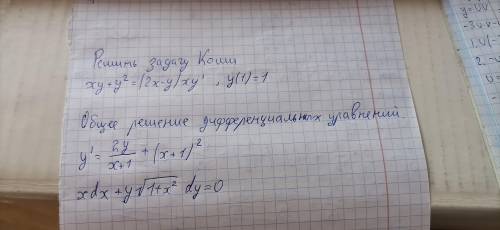 Решить задачу Коши
xy+y²=(2x-y)xy' , y(1)=1
Общее решение дифференциальных уравнений
y'= 2y/(x+1) + (x+1)²
xdx+y√(1+x²) dy=0